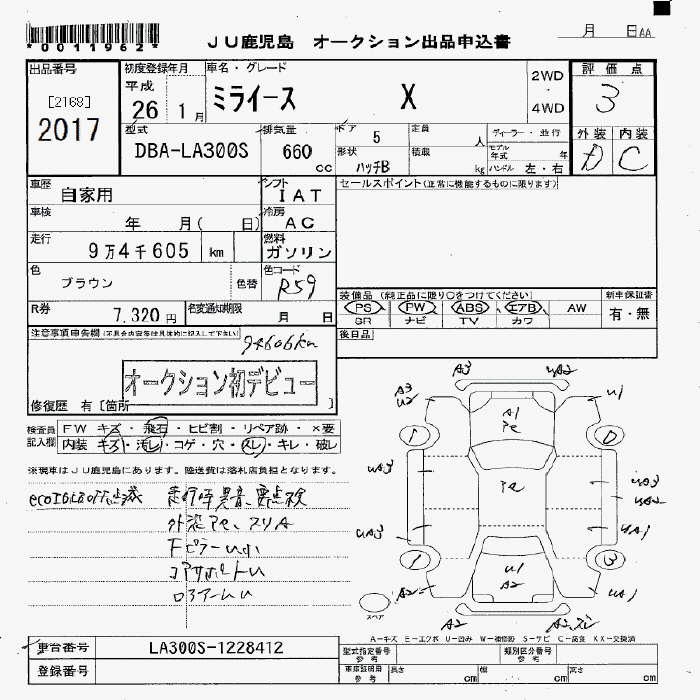 *0011962*
JU鹿児島 オークション出品申込書
月 日AA
出品番号
[2168]
2017
初度登録年月
平成
26 1月
車名・グレード
ミライース X
2WD
4WD
評価点
3
型式
DBA-LA300S
排気量
660
cc
ドア
5
定員
人
ディーラー・並行
モデル年式 年
形状
ハッチB
積載
kg
ハンドル 左・右
外装 内装
D C
車歴
自家用
シフト
IAT
セールスポイント(正常に機能するものに限ります)
車検
年 月( 日)
冷房
AC
走行
9万4千605 km
燃料
ガソリン
色
ブラウン
色替
色コード
R59
装備品 (純正品に限り○をつけてください)
新車保証書
PS PW ABS エアB AW
有・無
SR ナビ TV カワ
R券
7,320円
名変通知期限
月 日
後日品
注意事項申告欄(不具合内容等は具体的に記入して下さい)
94606km
オークション初デビュー
修復歴 有[箇所 ]
検査員記入欄
FW キズ・飛石・ヒビ割・リペア跡・×要
内装 キズ・汚レ・コゲ・穴・スレ・キレ・破レ
※現車はJU鹿児島にあります。陸送費は落札店負担となります。
走行時異音、要点検
A3 UA2
A3
U2
U1
A1
Pe
1 0
UA3
Pe
UA3
UA2
UA3
UA1
1 3
U1
A2
A2
UA1
A2
スペア
A-キズ E-エクボ U-凹み W-補修跡 S-サビ C-腐食 XX-交換済
車台番号
LA300S-1228412
型式指定番号
参考
類別区分番号
参考
登録番号
車庫証明用
参考
長さ cm 幅 cm 高さ cm